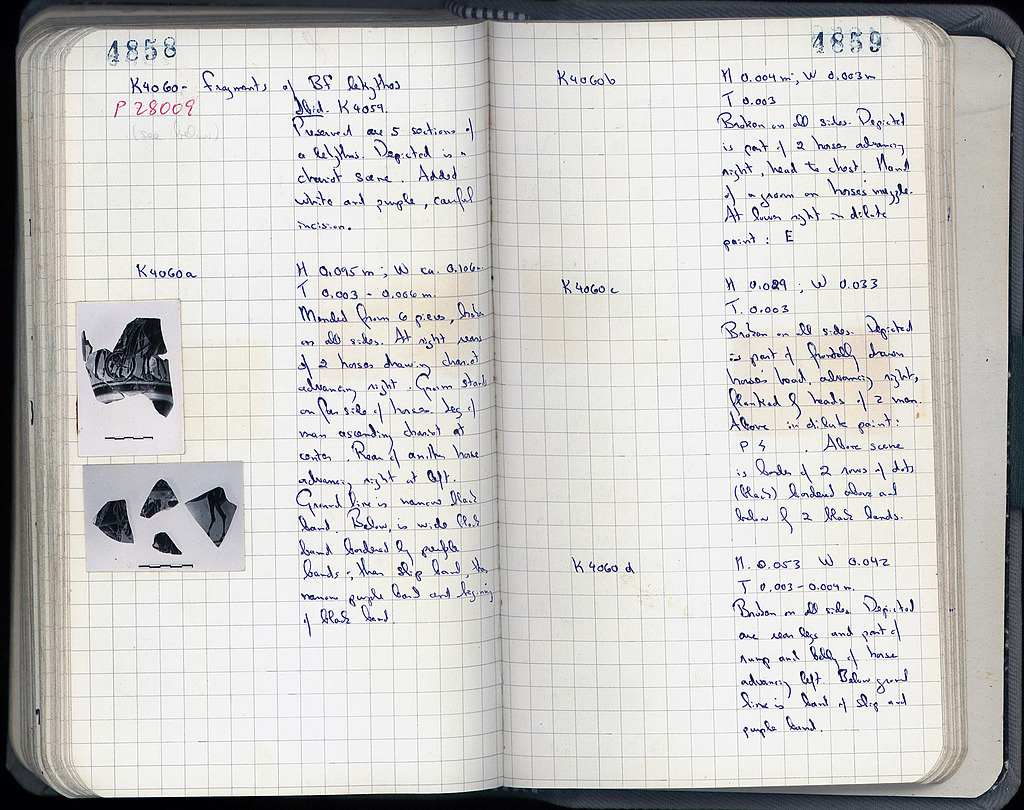 4858
K4060- fragments of BF lekythos
P 28009
(see below)
Ibid. K4059.
Preserved are 5 sections of
a lekythos. Depicted is a
chariot scene. Added
white and purple, careful
incision.
K4060a
H 0.095 m; W ca. 0.106m.
T 0.003 - 0.006 m.
Mended from 6 pieces, broken
on all sides. At right rears
of 2 horses drawing chariot
advancing right. Groom stands
on far side of horses. Leg of
man ascending chariot at
center. Rear of another horse
advancing right at left.
Ground line is narrow black
band. Below, is wide black
band bordered by purple
bands; then slip band, then
narrow purple band and beginning
of black band.
4859
K4060b
H 0.004m; W 0.003m
T 0.003
Broken on all sides. Depicted
is part of 2 horses advancing
right, head to chest. Hand
of a groom on horse's muzzle.
At lower right in dilute
paint: E
K4060c
H 0.029; W 0.033
T. 0.003
Broken on all sides. Depicted
is part of frontally drawn
horse's head, advancing right,
flanked by heads of 2 men.
Above in dilute paint:
P ϟ . Above scene
is border of 2 rows of dots
(black) bordered above and
below by 2 black bands.
K4060d
H. 0.053 W 0.042
T 0.003-0.004m.
Broken on all sides. Depicted
are rear legs and part of
rump and belly of horse
advancing left. Below ground
line is band of slip and
purple band.